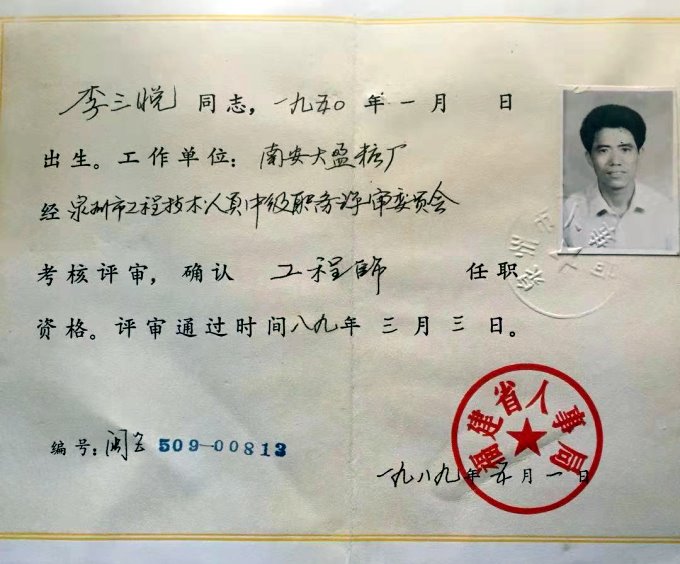 李三悦 同志，一九五〇年一月 日
出生。工作单位：南安大盈糖厂
经泉州市工程技术人员中级职务评审委员会
考核评审，确认 工程师 任职
资格。评审通过时间八九年三月三日。
编号：闽
509-00813
福建省人事局
一九八九年 月一日